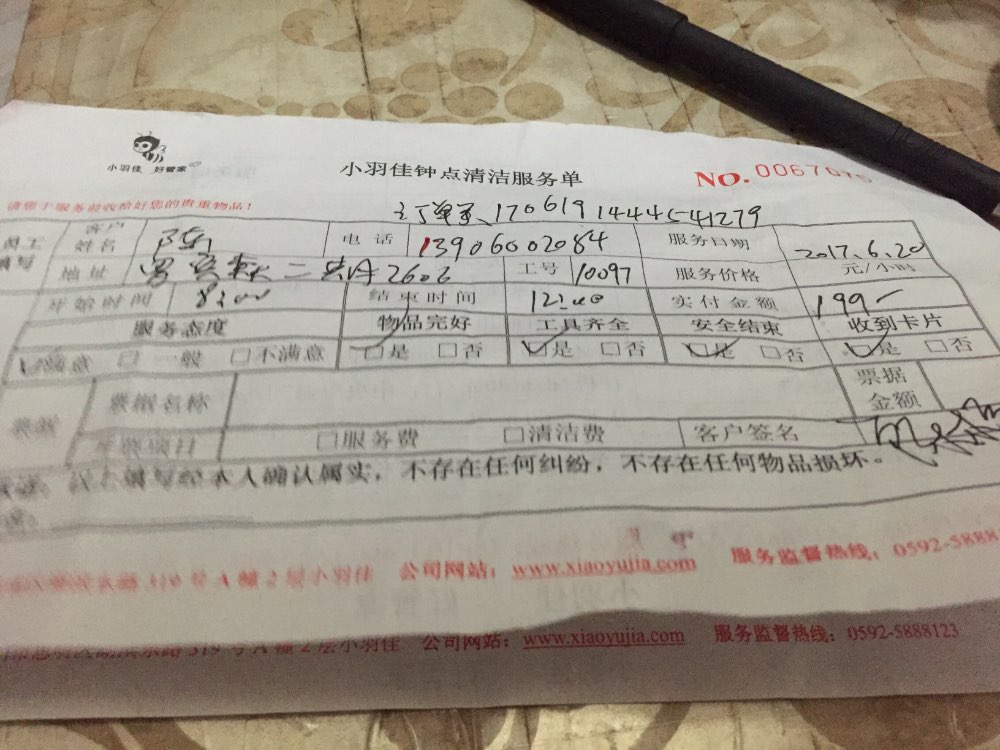 小羽佳 好管家
小羽佳钟点清洁服务单 NO. 0067075
请您于服务前收拾好您的贵重物品！
订单号、1706191444541279
员工填写 客户姓名 陈 电话 13906002084 服务日期 2017.6.20
地址 二 2602 工号 10097 服务价格 元/小时
开始时间 8:00 结束时间 12:00 实付金额 199-
服务态度 物品完好 工具齐全 安全结束 收到卡片
☑满意 □一般 □不满意 ☑是 □否 ☑是 □否 ☑是 □否 ☑是 □否
票据 票据名称 票据金额
开票项目 □服务费 □清洁费 客户签名
以上填写经本人确认属实，不存在任何纠纷，不存在任何物品损坏。
319号A幢2层小羽佳 公司网站：www.xiaoyujia.com 服务监督热线：0592-5888
319号A幢2层小羽佳 公司网站：www.xiaoyujia.com 服务监督热线：0592-5888123